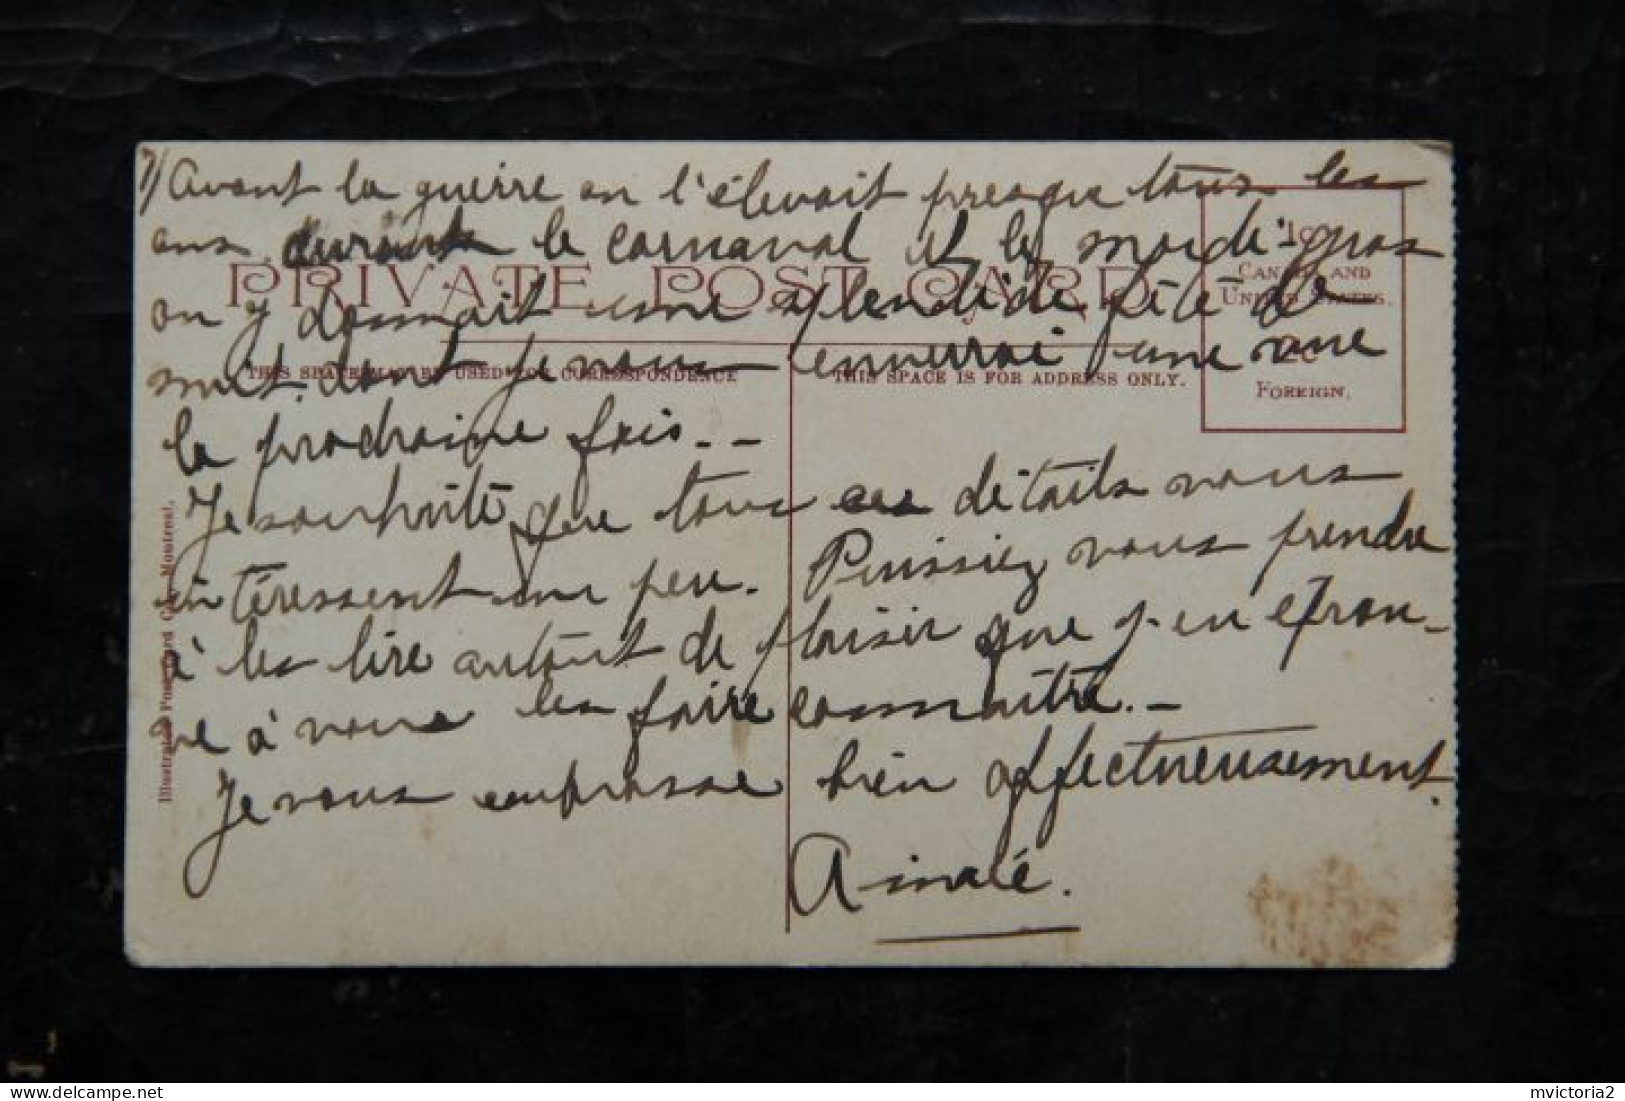 7/ Avant la guerre on l'élevait presque tous les
ans durant le carnaval et le mardi-gras
on y donnait une splendide fête de
nuit dont je vous enverrai une vue
la prochaine fois --
Je souhaite que tous ces détails vous
intéressent un peu. Puissiez vous prendre
à les lire autant de plaisir que j'en éprou-
ve à vous les faire connaître.-
Je vous embrasse bien affectueusement.
Aimée.
PRIVATE POST CARD
THIS SPACE MAY BE USED FOR CORRESPONDENCE
THIS SPACE IS FOR ADDRESS ONLY.
1c
CANADA AND
UNITED STATES.
2c
FOREIGN.
Illustrated Post Card Co., Montreal.
mvictoria2